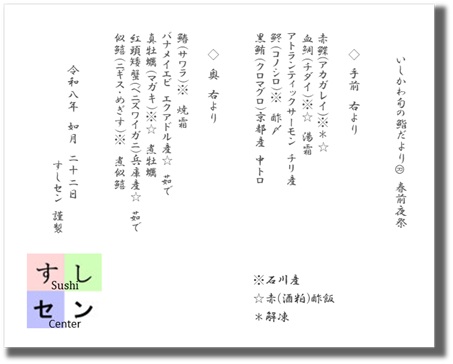 いしかわ旬の鮨だより 春前夜祭
◇ 手前 右より
赤鰈(アカガレイ)※＊☆
血鯛(チダイ)※☆ 湯霜
アトランティックサーモン チリ産
鮗(コノシロ)※ 酢〆
黒鮪(クロマグロ)京都産 中トロ
◇ 奥 右より
鰆(サワラ)※ 焼霜
バナメイエビ エクアドル産☆ 茹で
真牡蠣(マガキ)※☆ 煮牡蠣
紅頭矮蟹(ベニズワイガニ)兵庫産☆ 茹で
似鱚(ニギス・めぎす)※ 煮似鱚
令和八年 如月 二十二日
すしセン 謹製
※石川産
☆赤(酒粕)酢飯
＊解凍
すし
Sushi
セン
Center